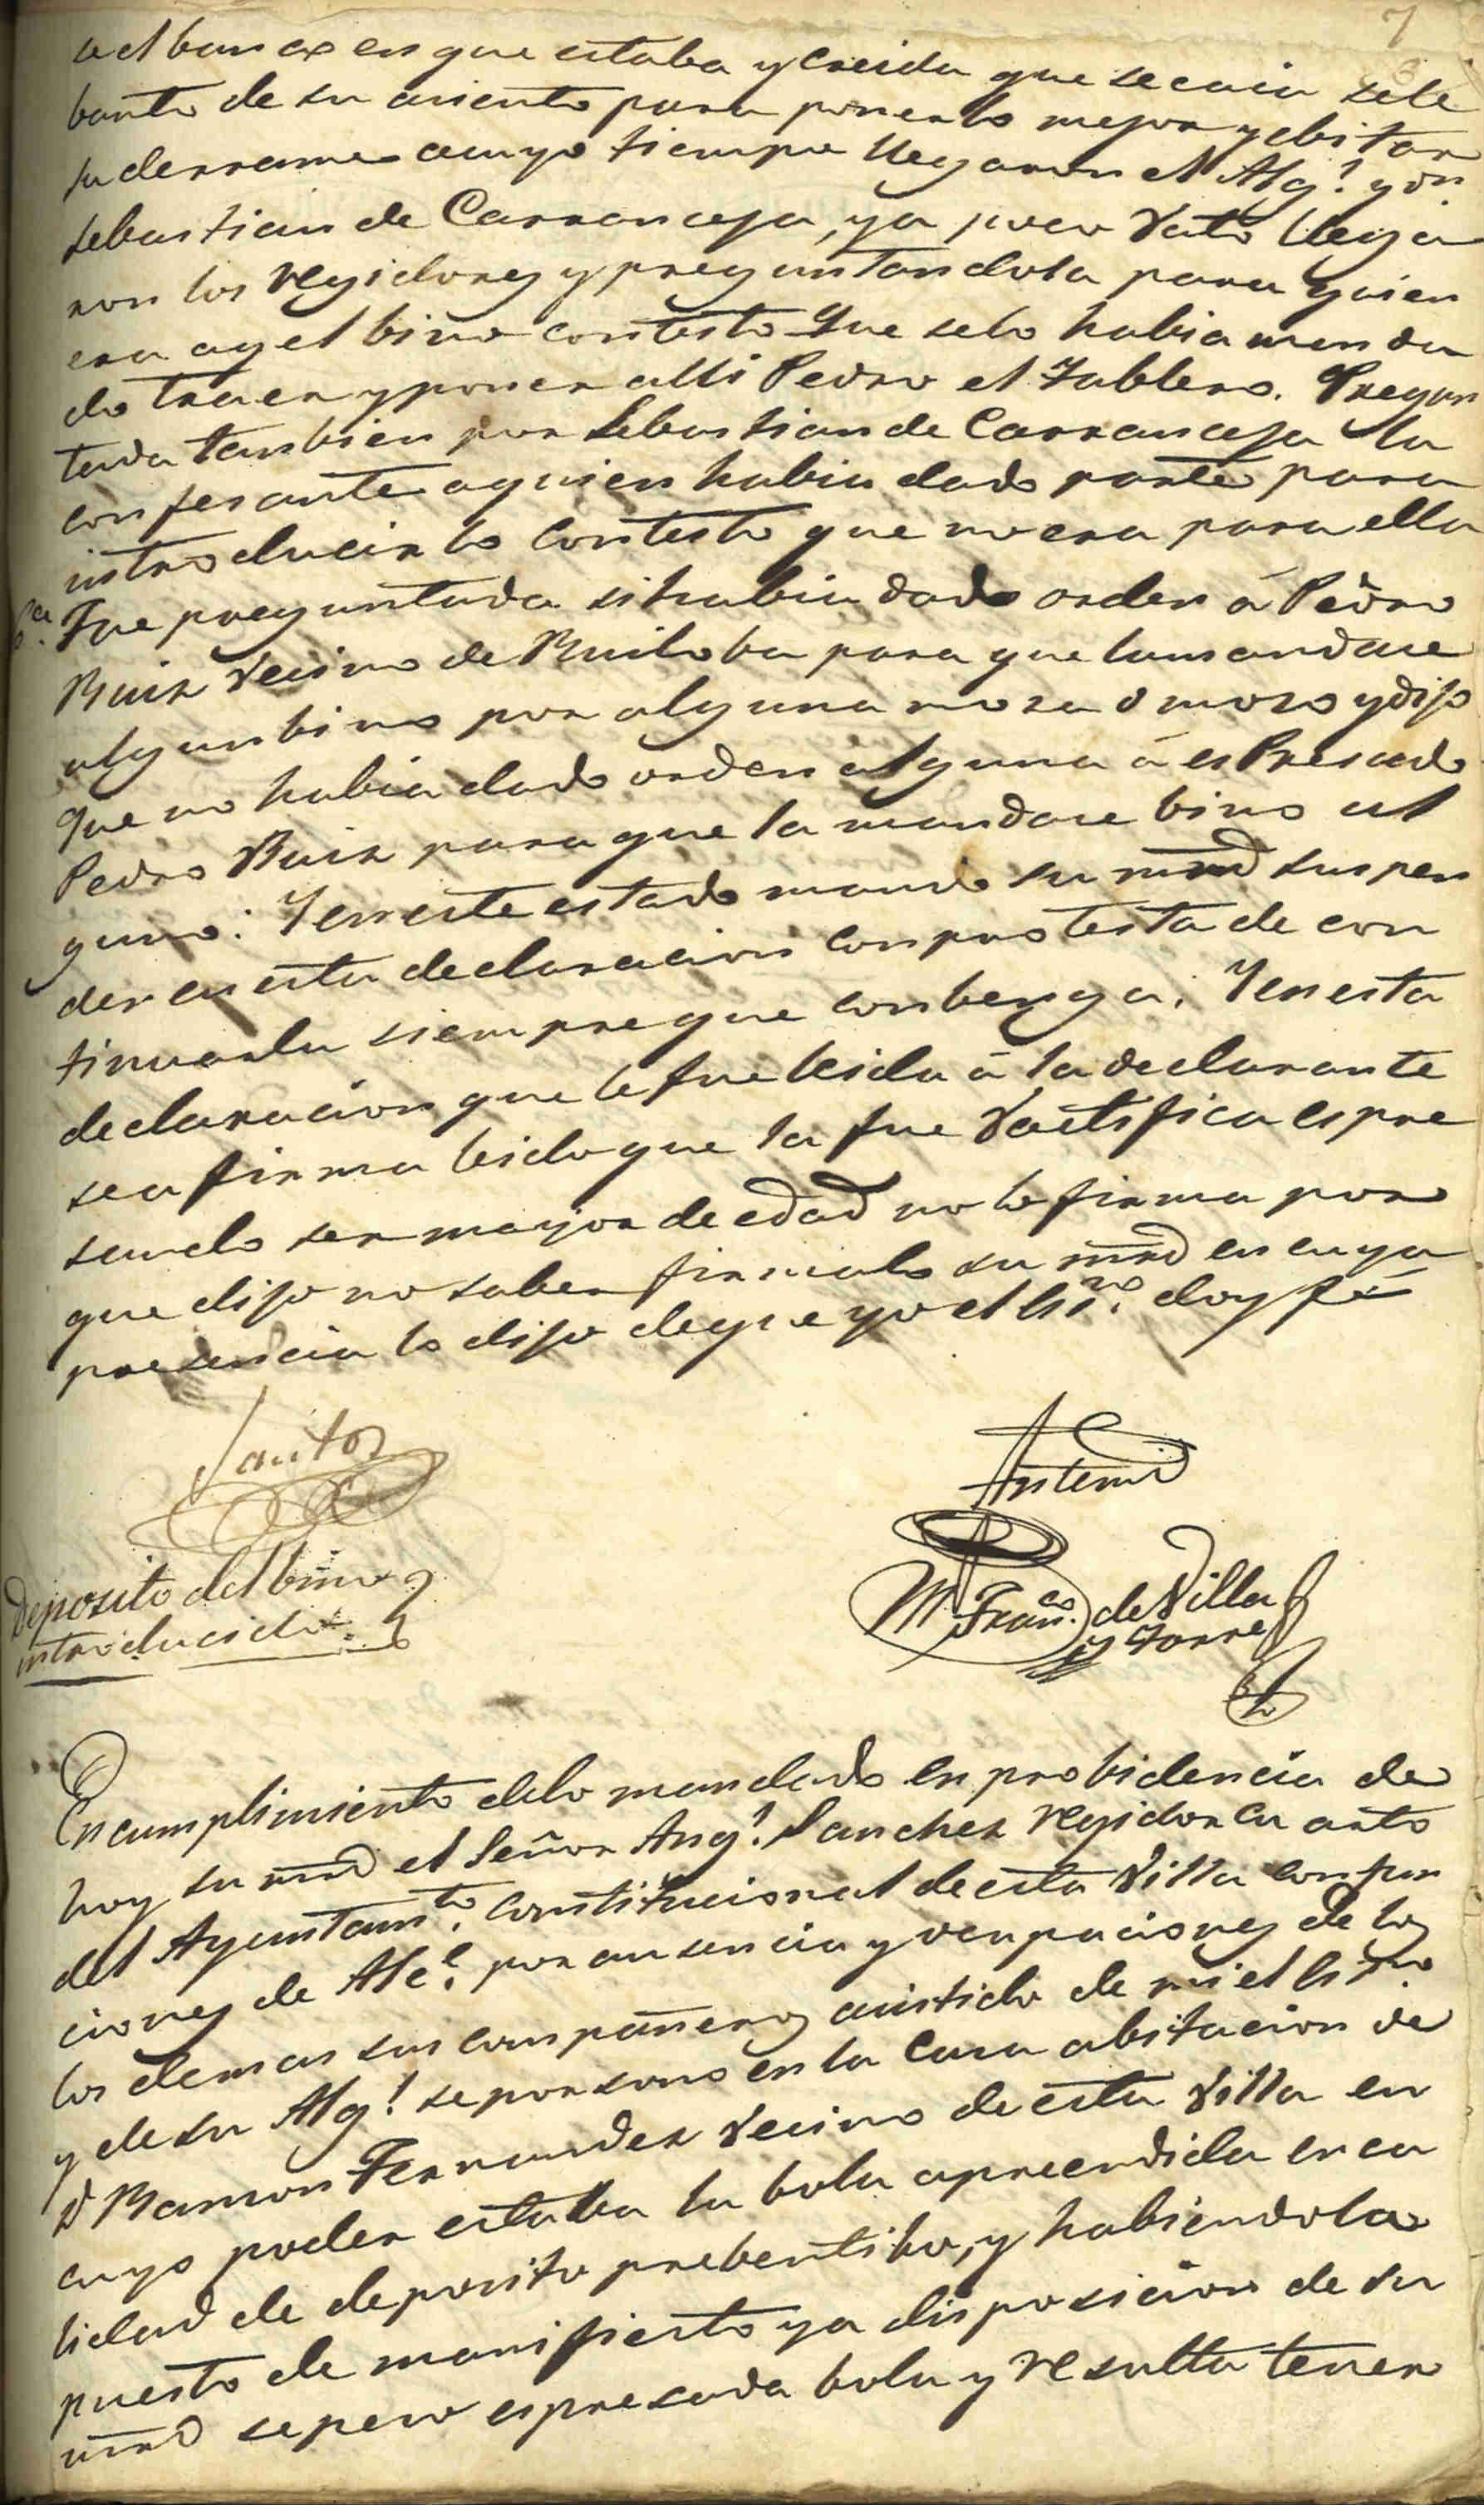 7
a el banco en que estaba y creida que se caia se le
banto de su asiento para ponerlo mejor y ebitar
su derrame a cuyo tiempo llegaron el Alg.l y Dn
Sebastian de Carranceja, y a poco rato llega
ron los regidores y preguntandola para quien
era aq el bino contesto que se lo habia manda
do traer y poner alli Pedro el Tablero. Pregun
tada tambien por Sebastian de Carranceja la
confesante a quien habia dado parte para
introducirlo contesto que no era para ella
Fue preguntada si habia dado orden á Pedro
Ruiz vecino de Ruiloba para que la mandase
algun bino por alguna moza o mozo y dijo
que no habia dado orden alguna á espresado
Pedro Ruiz para que la mandase bino al
guno: Y en este estado mando su mrd suspen
der en esta declaracion con protesta de con
tinuarla siempre que conbenga; Y en esta
declaracion que le fue leida á la declarante
se afirma leido que la fue ratifica espre
sando ser mayor de edad no lo firma por
que dijo no saber firmalo su mrd en cuya
presencia lo dijo de que yo el Es.no doy fé
Santos
Antemi
M Fran.co de Villa
y Torre
Deposito del bino
introducido.
En cumplimiento delo mandado en probidencia de
hoy su mrd el Señor Ang.l Sanchez regidor cuarto
del Ayuntam.to constitucional de esta Villa con fun
ciones de Alc.e por ausencia y ocupaciones de los
los demas sus compañeros asistido de mi el Es.no
y de su Alg.l se persono en la Casa abitacion de
D Ramon Fernandez vecino de esta Villa en
cuyo poder estaba la bota apreendida en ca
lidad de deposito prebentibo, y habiendola
puesto de manifiesto y a disposicion de su
mrd se peso espresada bota y resulta tener